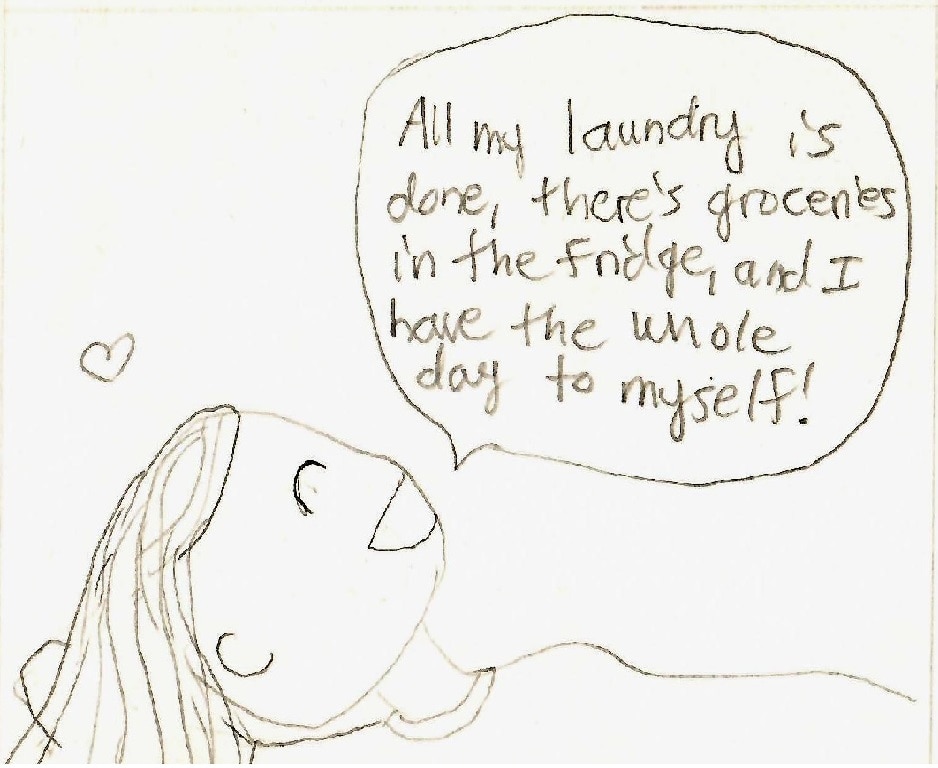 All my laundry is
done, there's groceries
in the fridge, and I
have the whole
day to myself!